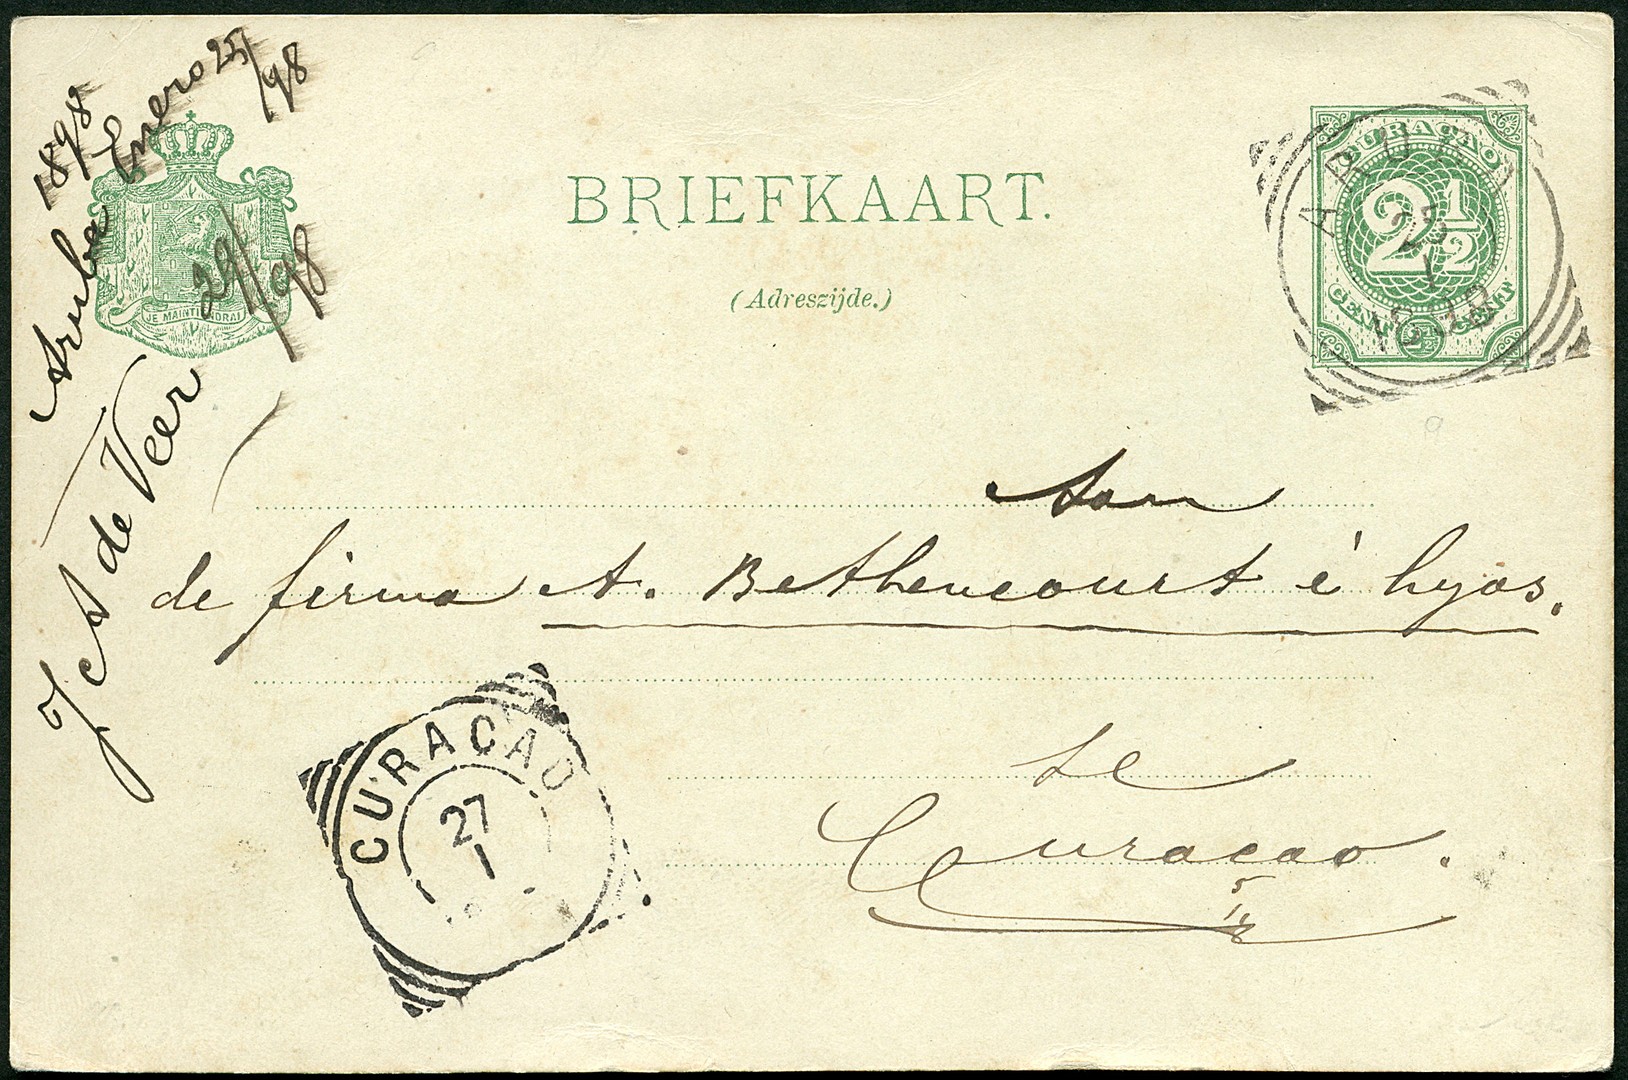 1898
Enero 25/98
Aruba
29/98
J A de Veer
JE MAINTIENDRAI
BRIEFKAART.
(Adreszijde.)
CURAÇAO
2 1/2
CENT 2 1/2 CENT
ARUBA
25
1
Aan
de firma A. Bethencourt é hyos.
te
Curaçao.
CURAÇAO
27
1